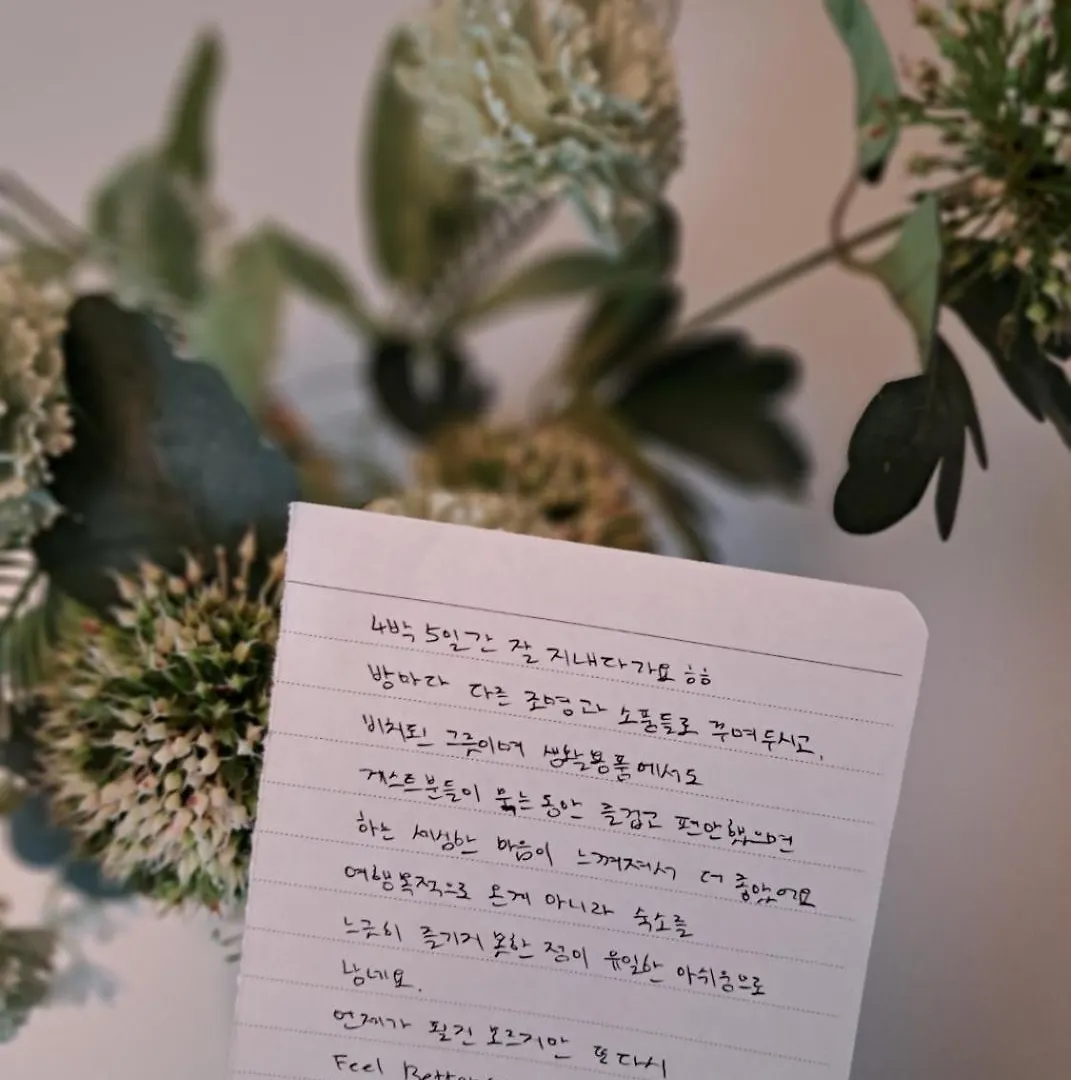 4박 5일간 잘 지내다가요 ㅎㅎ
방마다 다른 조명과 소품들로 꾸며두시고,
비치된 그릇이며 생활용품에서도
게스트분들이 묵는 동안 즐겁고 편안했으면
하는 세심한 마음이 느껴져서 더 좋았어요
여행목적으로 온게 아니라 숙소를
느긋히 즐기지 못한 점이 유일한 아쉬움으로
남네요.
언제가 될진 모르지만 또다시
Feel